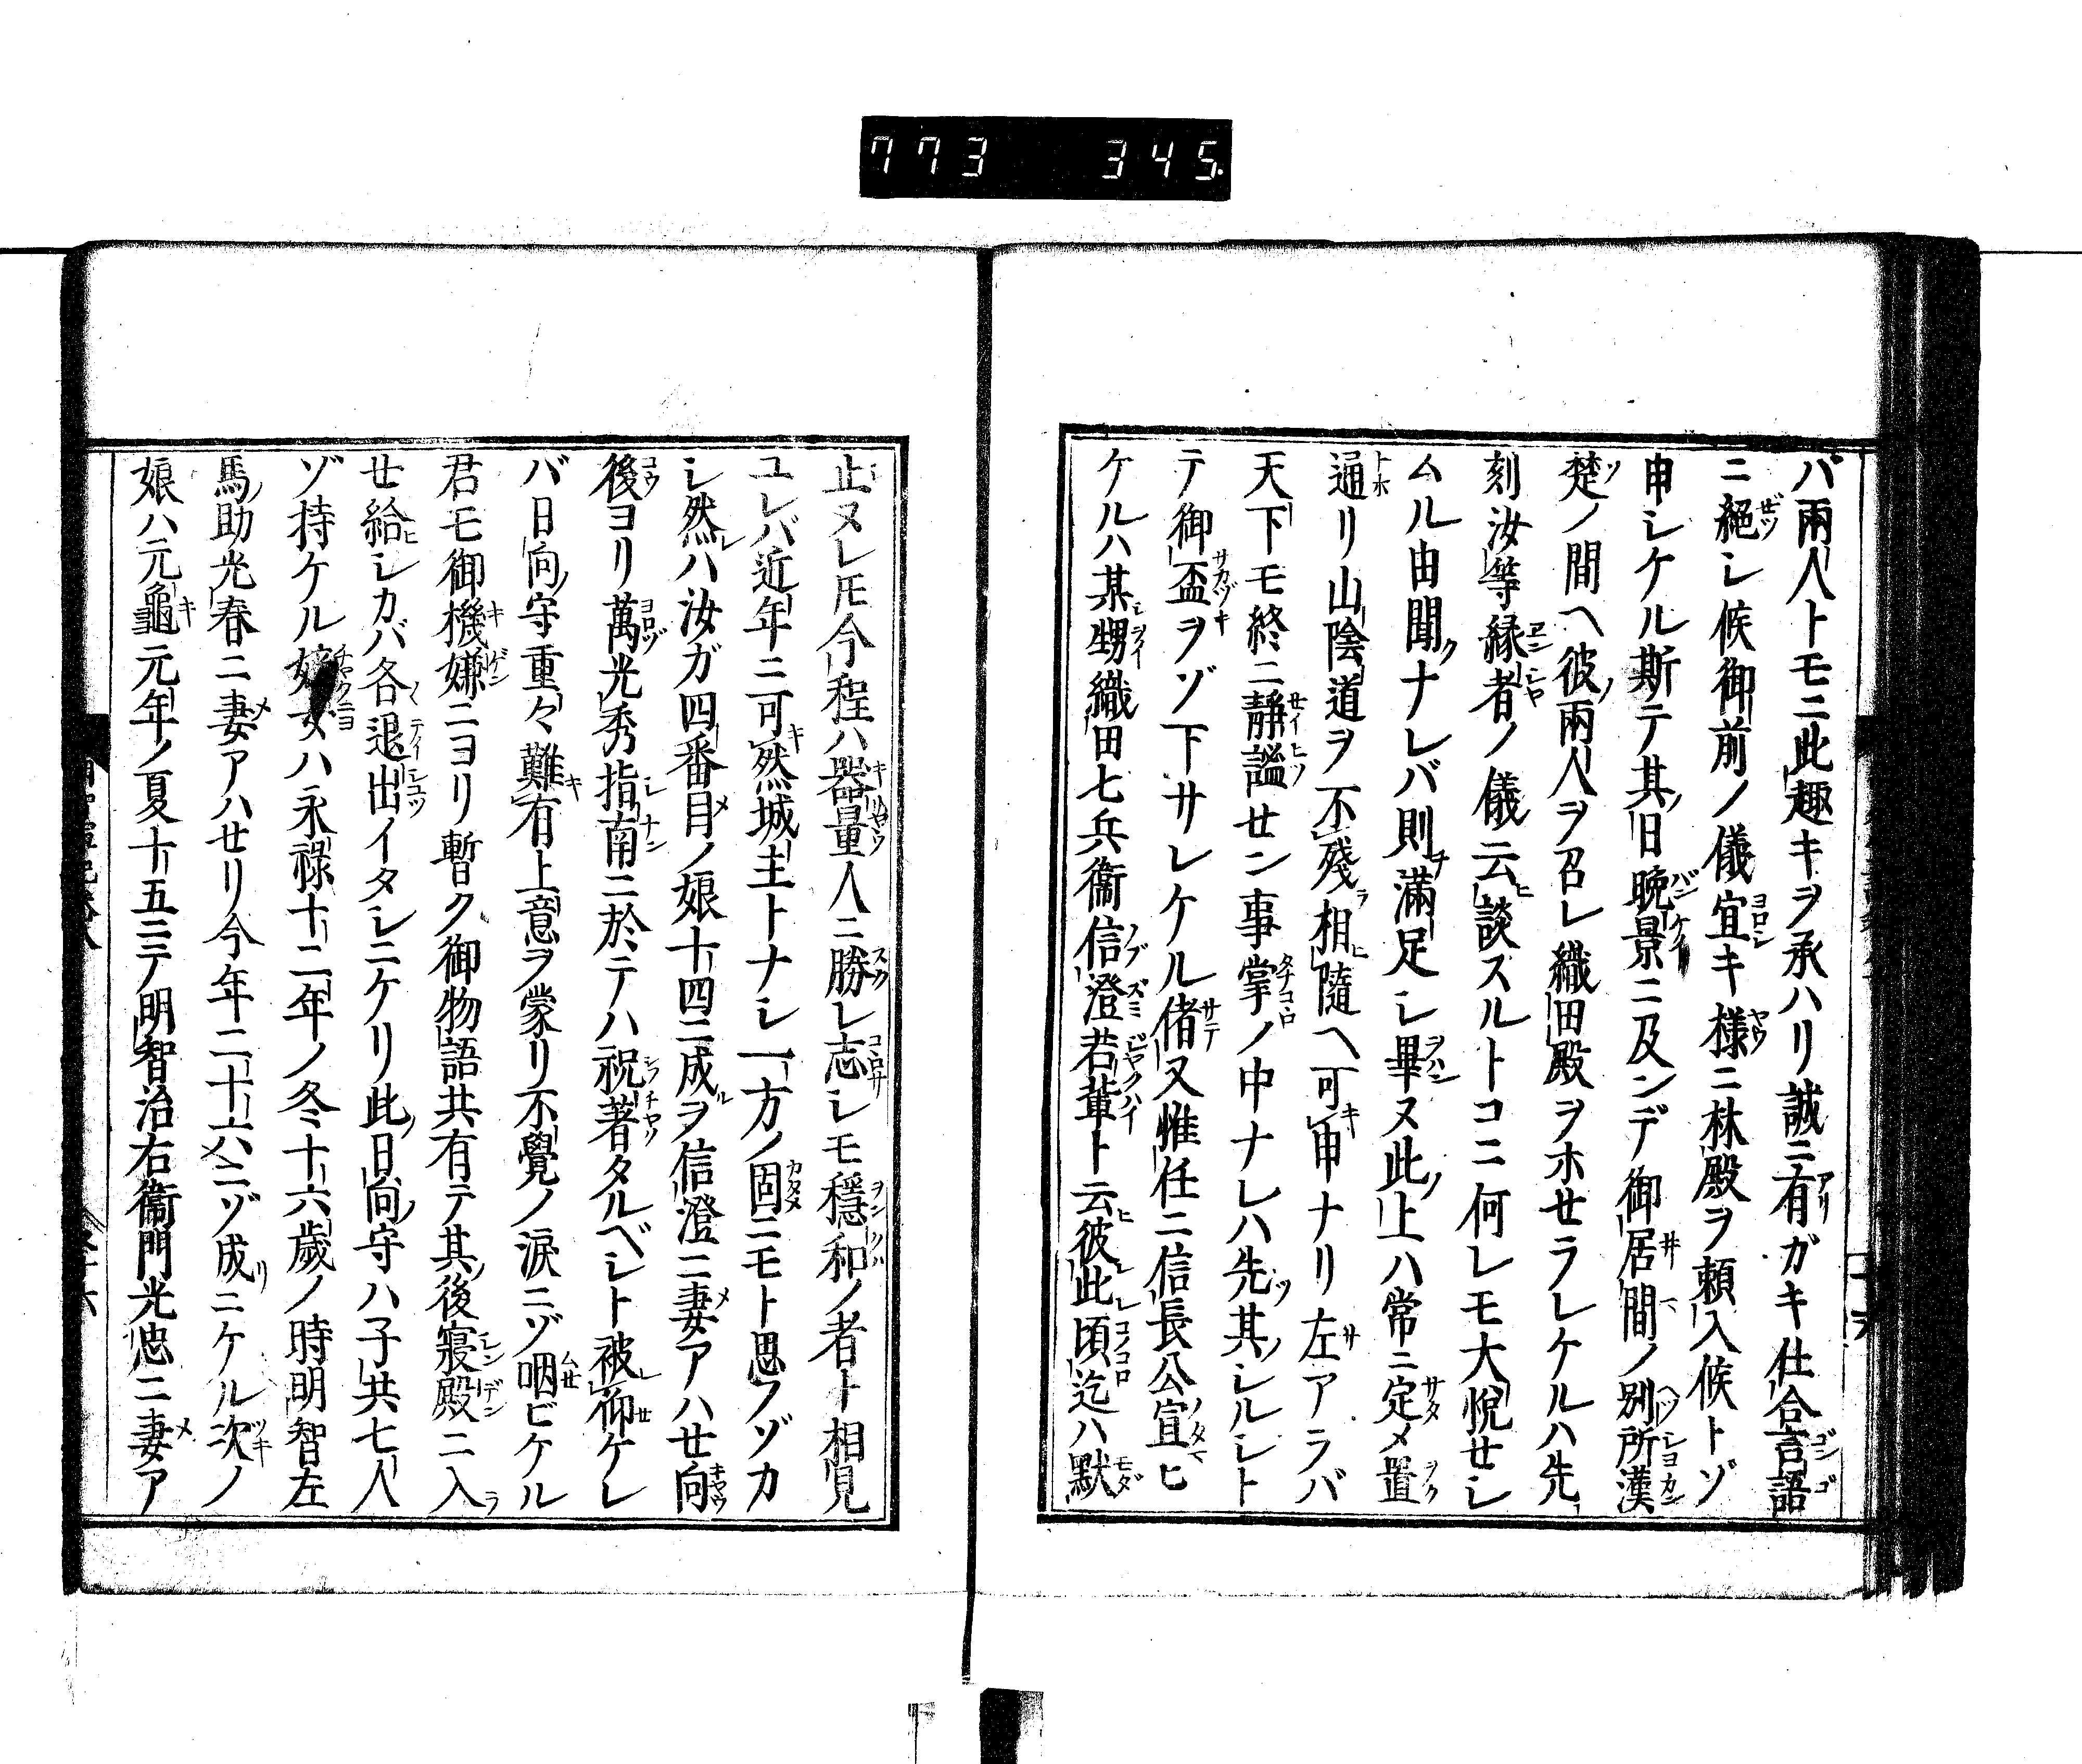 773 345
パ兩人トモニ此趣キヲ承ハリ誠ニ有ガキ仕合言語
ニ絕シ候御前ノ儀宜キ樣ニ林殿ヲ頼入候トゾ
申シケル斯テ其日晩景ニ及ンデ御居間ノ別所漢
楚ノ間ヘ彼兩人ヲ召レ織田殿ヲホセラレケルハ先
刻汝等縁者ノ儀云談スルトコニ何レモ大悅セシ
ムル由聞ナレバ則滿足シ畢ヌ此上ハ常ニ定メ置
通リ山陰道ヲ不殘相隨ヘ可申ナリ左アラバ
天下モ終ニ靜謐セン事掌ノ中ナレハ先其シルシト
テ御盃ヲゾ下サレケル偖又惟任ニ信長公宣ヒ
ケルハ某甥織田七兵衞信澄若輩ト云彼此頃迄ハ默
止ヌレ𪜈今程ハ器量人ニ勝レ志シモ穩和ノ者ト相見
ユレバ近年ニ可然城主トナシ一方ノ固ニモト思フゾカ
シ然ハ汝ガ四番目ノ娘十四ニ成ヲ信澄ニ妻アハせ向
後ヨリ萬光秀指南ニ於テハ祝著タルベシト被仰ケレ
バ日向守重々難有上意ヲ蒙リ不覺ノ淚ニゾ咽ビケル
君モ御機嫌ニヨリ暫ク御物語共有テ其後寢殿ニ入
せ給シカバ各退出イタシニケリ此日向守ハ子共七人
ゾ持ケル女ハ永祿十二年ノ冬十六歲ノ時明智左
馬助光春ニ妻アハせリ今年二十六ニゾ成ニケル次ノ
娘ハ元龜元年ノ夏十五ニテ明智治右衞門光忠ニ妻ア